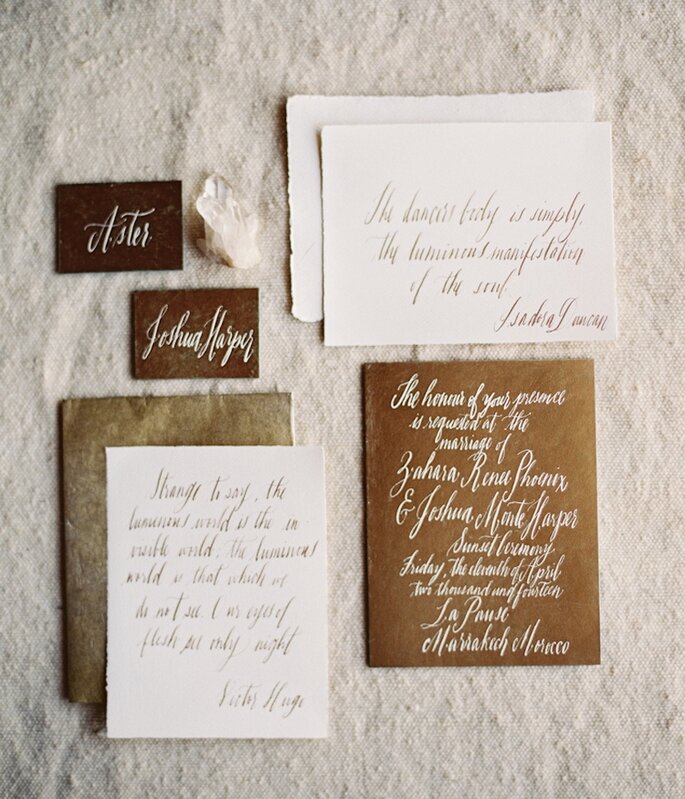 Aster
Joshua Harper
The dancers body is simply,
the luminous manifestation
of the soul.
Isadora Duncan
Strange to say, the
luminous world is the in-
visible world; the luminous
world is that which we
do not see. Our eyes of
flesh see only night
Victor Hugo
The honour of your presence
is requested at the
marriage of
Zahara Renee Phoenix
& Joshua Monte Harper
Sunset Ceremony
Friday, the eleventh of April
two thousand and fourteen
La Pause
Marrakech Morocco